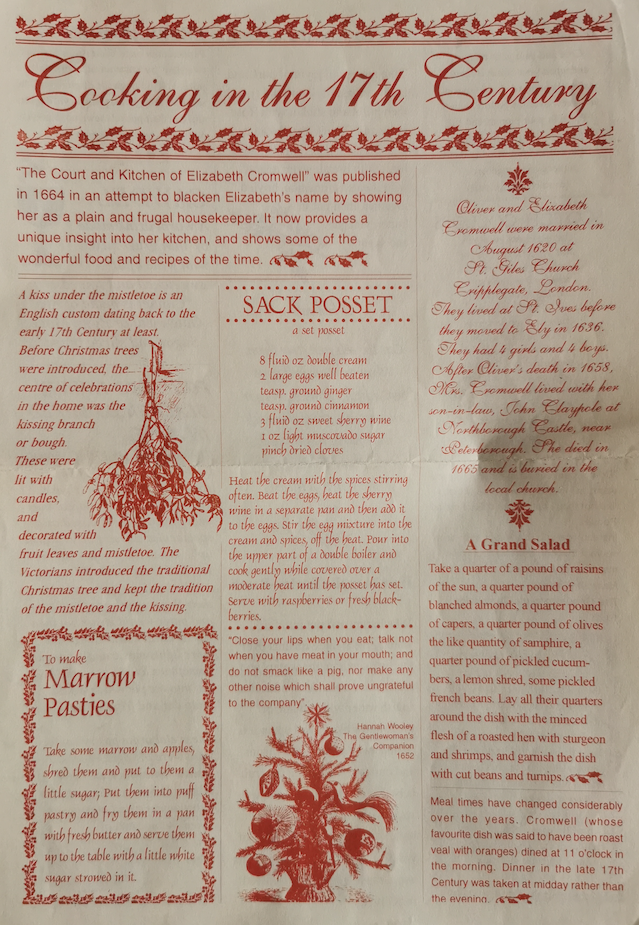 Cooking in the 17th Century
"The Court and Kitchen of Elizabeth Cromwell" was published
in 1664 in an attempt to blacken Elizabeth's name by showing
her as a plain and frugal housekeeper. It now provides a
unique insight into her kitchen, and shows some of the
wonderful food and recipes of the time.
A kiss under the mistletoe is an
English custom dating back to the
early 17th Century at least.
Before Christmas trees
were introduced, the
centre of celebrations
in the home was the
kissing branch
or bough.
These were
lit with
candles,
and
decorated with
fruit leaves and mistletoe. The
Victorians introduced the traditional
Christmas tree and kept the tradition
of the mistletoe and the kissing.
To make
Marrow
Pasties
Take some marrow and apples,
shred them and put to them a
little sugar; Put them into puff
pastry and fry them in a pan
with fresh butter and serve them
up to the table with a little white
sugar strowed in it.
SACK POSSET
a set posset
8 fluid oz double cream
2 large eggs well beaten
teasp. ground ginger
teasp. ground cinnamon
3 fluid oz sweet sherry wine
1 oz light muscovado sugar
pinch dried cloves
Heat the cream with the spices stirring
often. Beat the eggs, heat the sherry
wine in a separate pan and then add it
to the eggs. Stir the egg mixture into the
cream and spices, off the heat. Pour into
the upper part of a double boiler and
cook gently while covered over a
moderate heat until the posset has set.
Serve with raspberries or fresh black-
berries.
"Close your lips when you eat; talk not
when you have meat in your mouth; and
do not smack like a pig, nor make any
other noise which shall prove ungrateful
to the company"
Hannah Wooley
The Gentlewoman's
Companion
1652
Oliver and Elizabeth
Cromwell were married in
August 1620 at
St. Giles Church
Cripplegate, London.
They lived at St. Ives before
they moved to Ely in 1636.
They had 4 girls and 4 boys.
After Oliver's death in 1658,
Mrs. Cromwell lived with her
son-in-law, John Claypole at
Northborough Castle, near
Peterborough. She died in
1665 and is buried in the
local church.
A Grand Salad
Take a quarter of a pound of raisins
of the sun, a quarter pound of
blanched almonds, a quarter pound
of capers, a quarter pound of olives
the like quantity of samphire, a
quarter pound of pickled cucum-
bers, a lemon shred, some pickled
french beans. Lay all their quarters
around the dish with the minced
flesh of a roasted hen with sturgeon
and shrimps, and garnish the dish
with cut beans and turnips.
Meal times have changed considerably
over the years. Cromwell (whose
favourite dish was said to have been roast
veal with oranges) dined at 11 o'clock in
the morning. Dinner in the late 17th
Century was taken at midday rather than
the evening.